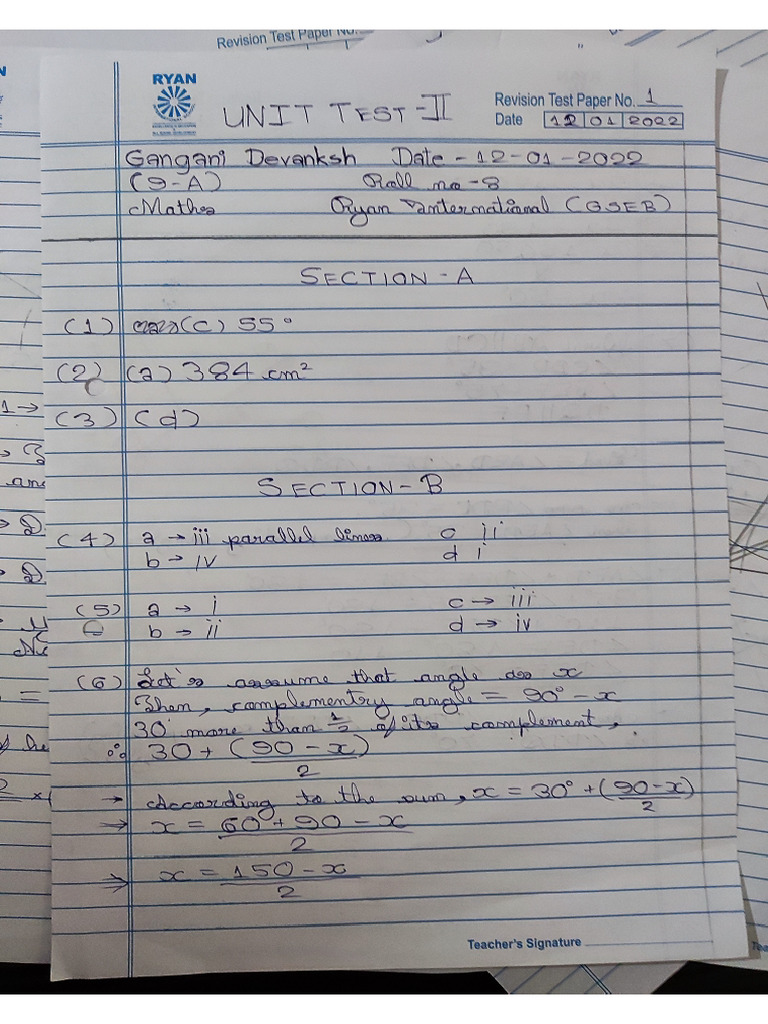 Revision Test Paper No.
RYAN
UNIT TEST-II
Revision Test Paper No. 1
Date 12 01 2022
Gangani Devanksh Date - 12-01-2022
(9-A) Roll no -8
Maths Ryan International (GSEB)
SECTION - A
(1) (C) 55°
(2) (a) 384 cm²
(3) (d)
SECTION - B
(4) a → iii parallel lines c ii
b → iv d i
(5) a → i c → iii
b → ii d → iv
(6) Let's assume that angle is x
Then, complementry angle = 90° - x
30° more than 1/2 of its complement,
∴ 30 + (90 - x)/2
→ According to the sum, x = 30° + (90-x)/2
⇒ x = 60° + 90 - x/2
⇒ x = 150 - x/2
Teacher's Signature